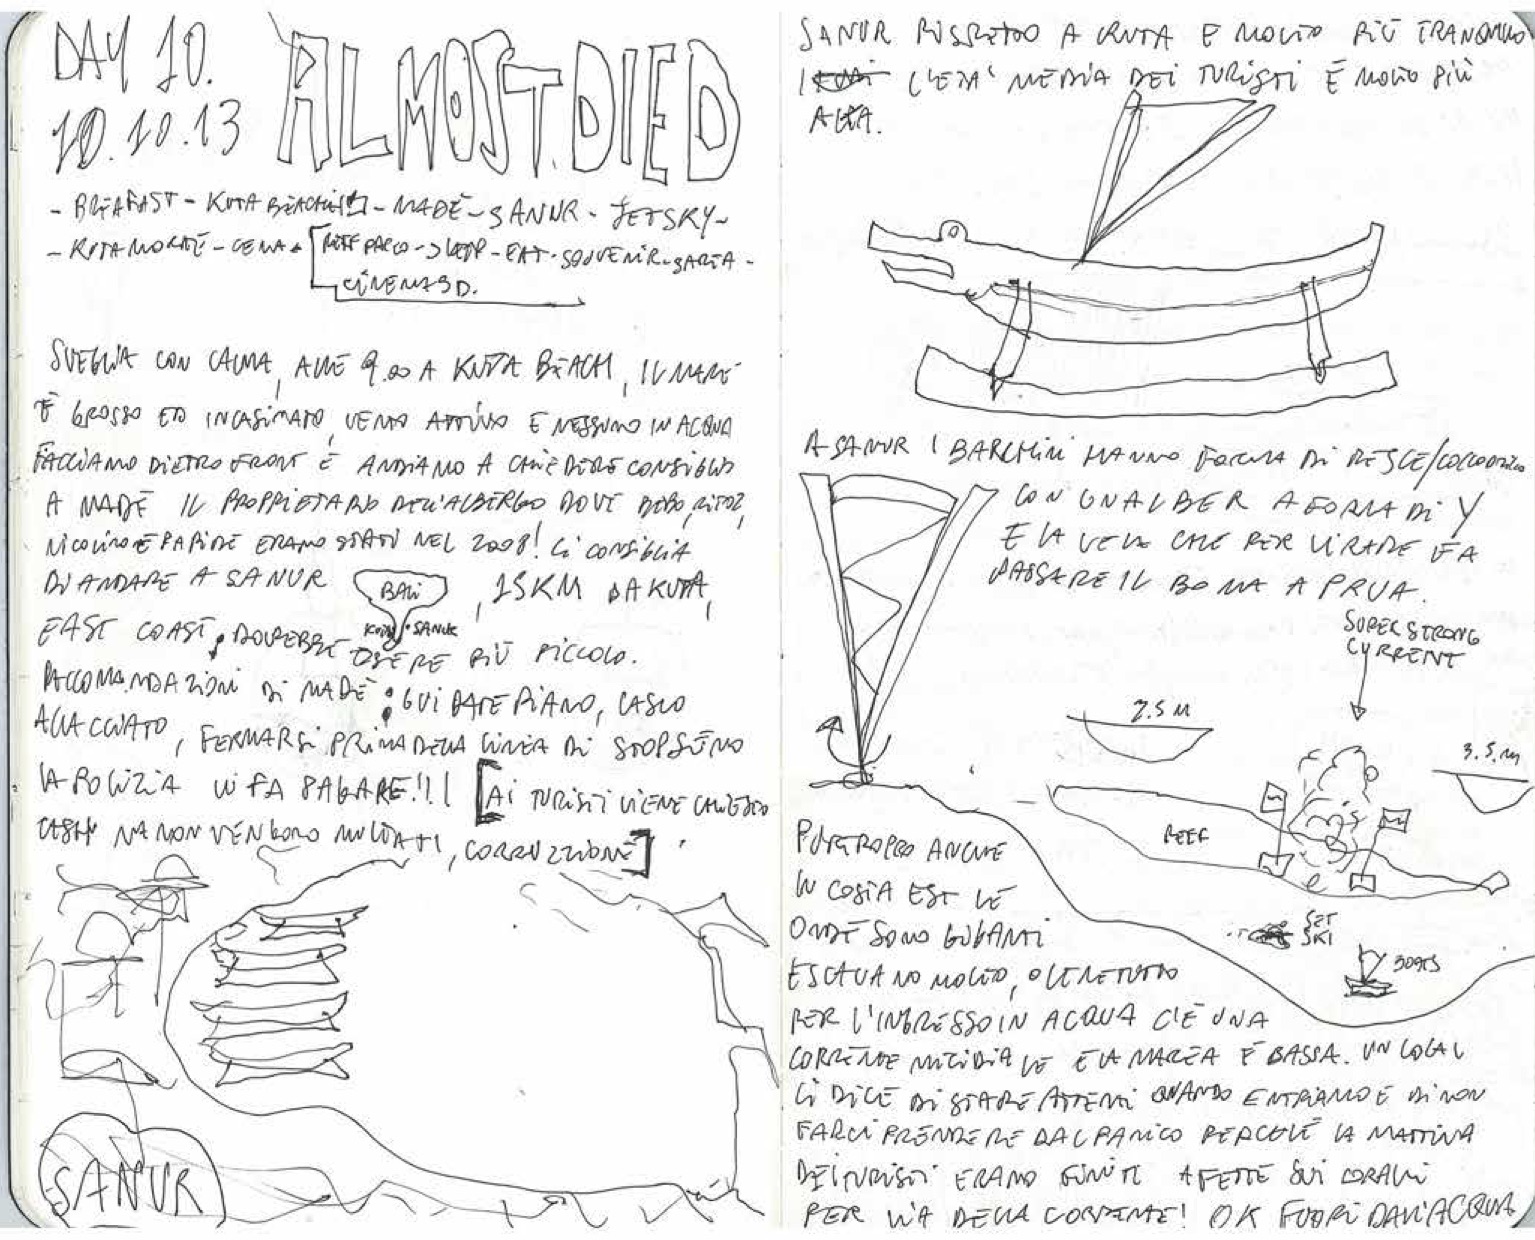 DAY 10.
10.10.13
ALMOST.DIED
- BREAFAST - KUTA BEACH - MADÈ - SANUR - JETSKY -
- KUTA MORTÈ - CENA + [ RIFF PARCO - SLEEP - EAT - SOUVENIR - SARTA -
CINEMA 3D.
SVEGLIA CON CALMA, ALLE 9.00 A KUTA BEACH, IL MARE
È GROSSO ED INCASINATO, VENTO ATTIVO E NESSUNO IN ACQUA
FACCIAMO DIETRO FRONT E ANDIAMO A CHIEDERE CONSIGLIO
A MADÈ IL PROPRIETARIO DELL'ALBERGO DOVE BIBO,
NICOLINO E PAPIRE ERANO STATI NEL 2008! CI CONSIGLIA
DI ANDARE A SANUR, 15KM DA KUTA,
BALI
KUTA · SANUR
EAST COAST, DOVREBBE ESSERE PIÙ PICCOLO.
RACCOMANDAZIONI DI MADÈ: GUIDATE PIANO, CASCO
ALLACCIATO, FERMARSI PRIMA DELLA LINEA DI STOP SENNO
LA POLIZIA VI FA PAGARE!!! [AI TURISTI VIENE CHIESTO
CASH MA NON VENGONO MULTATI, CORRUZIONE]
SANUR
SANUR RISPETTO A KUTA E MOLTO PIÙ TRANQUILLO
L'ETA' MEDIA DEI TURISTI È MOLTO PIÙ
ALTA.
A SANUR I BARCHINI HANNO FORMA DI PESCE/COCCODRILLO
CON UN ALBER A FORMA DI Y
E LA VELA CHE PER VIRARE FA
PASSARE IL BOMA A PRUA.
SUPER STRONG
CURRENT
2.5 M
3.5.M
REEF
JET
SKI
BOATS
PURTROPPO ANCHE
IN COSTA EST LE
ONDE SONO GIGANTI
ESCAVANO MOLTO, OLTRETUTTO
PER L'INGRESSO IN ACQUA C'È UNA
CORRENTE MICIDIALE E LA MAREA È BASSA. UN LOCAL
CI DICE DI STARE ATTENTI QUANDO ENTRIAMO E DI NON
FARCI PRENDERE DAL PANICO PERCHÈ LA MATTINA
DEI TURISTI ERANO FINITI A FETTE SUI CORALLI
PER VIA DELLA CORRENTE! OK FUORI DALL'ACQUA